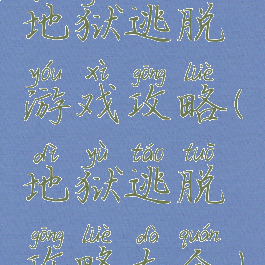 地狱逃脱
yóu xì gōng lüè
游戏攻略(
dì yù táo tuō
地狱逃脱
gōng lüè dà quán
攻略大全)